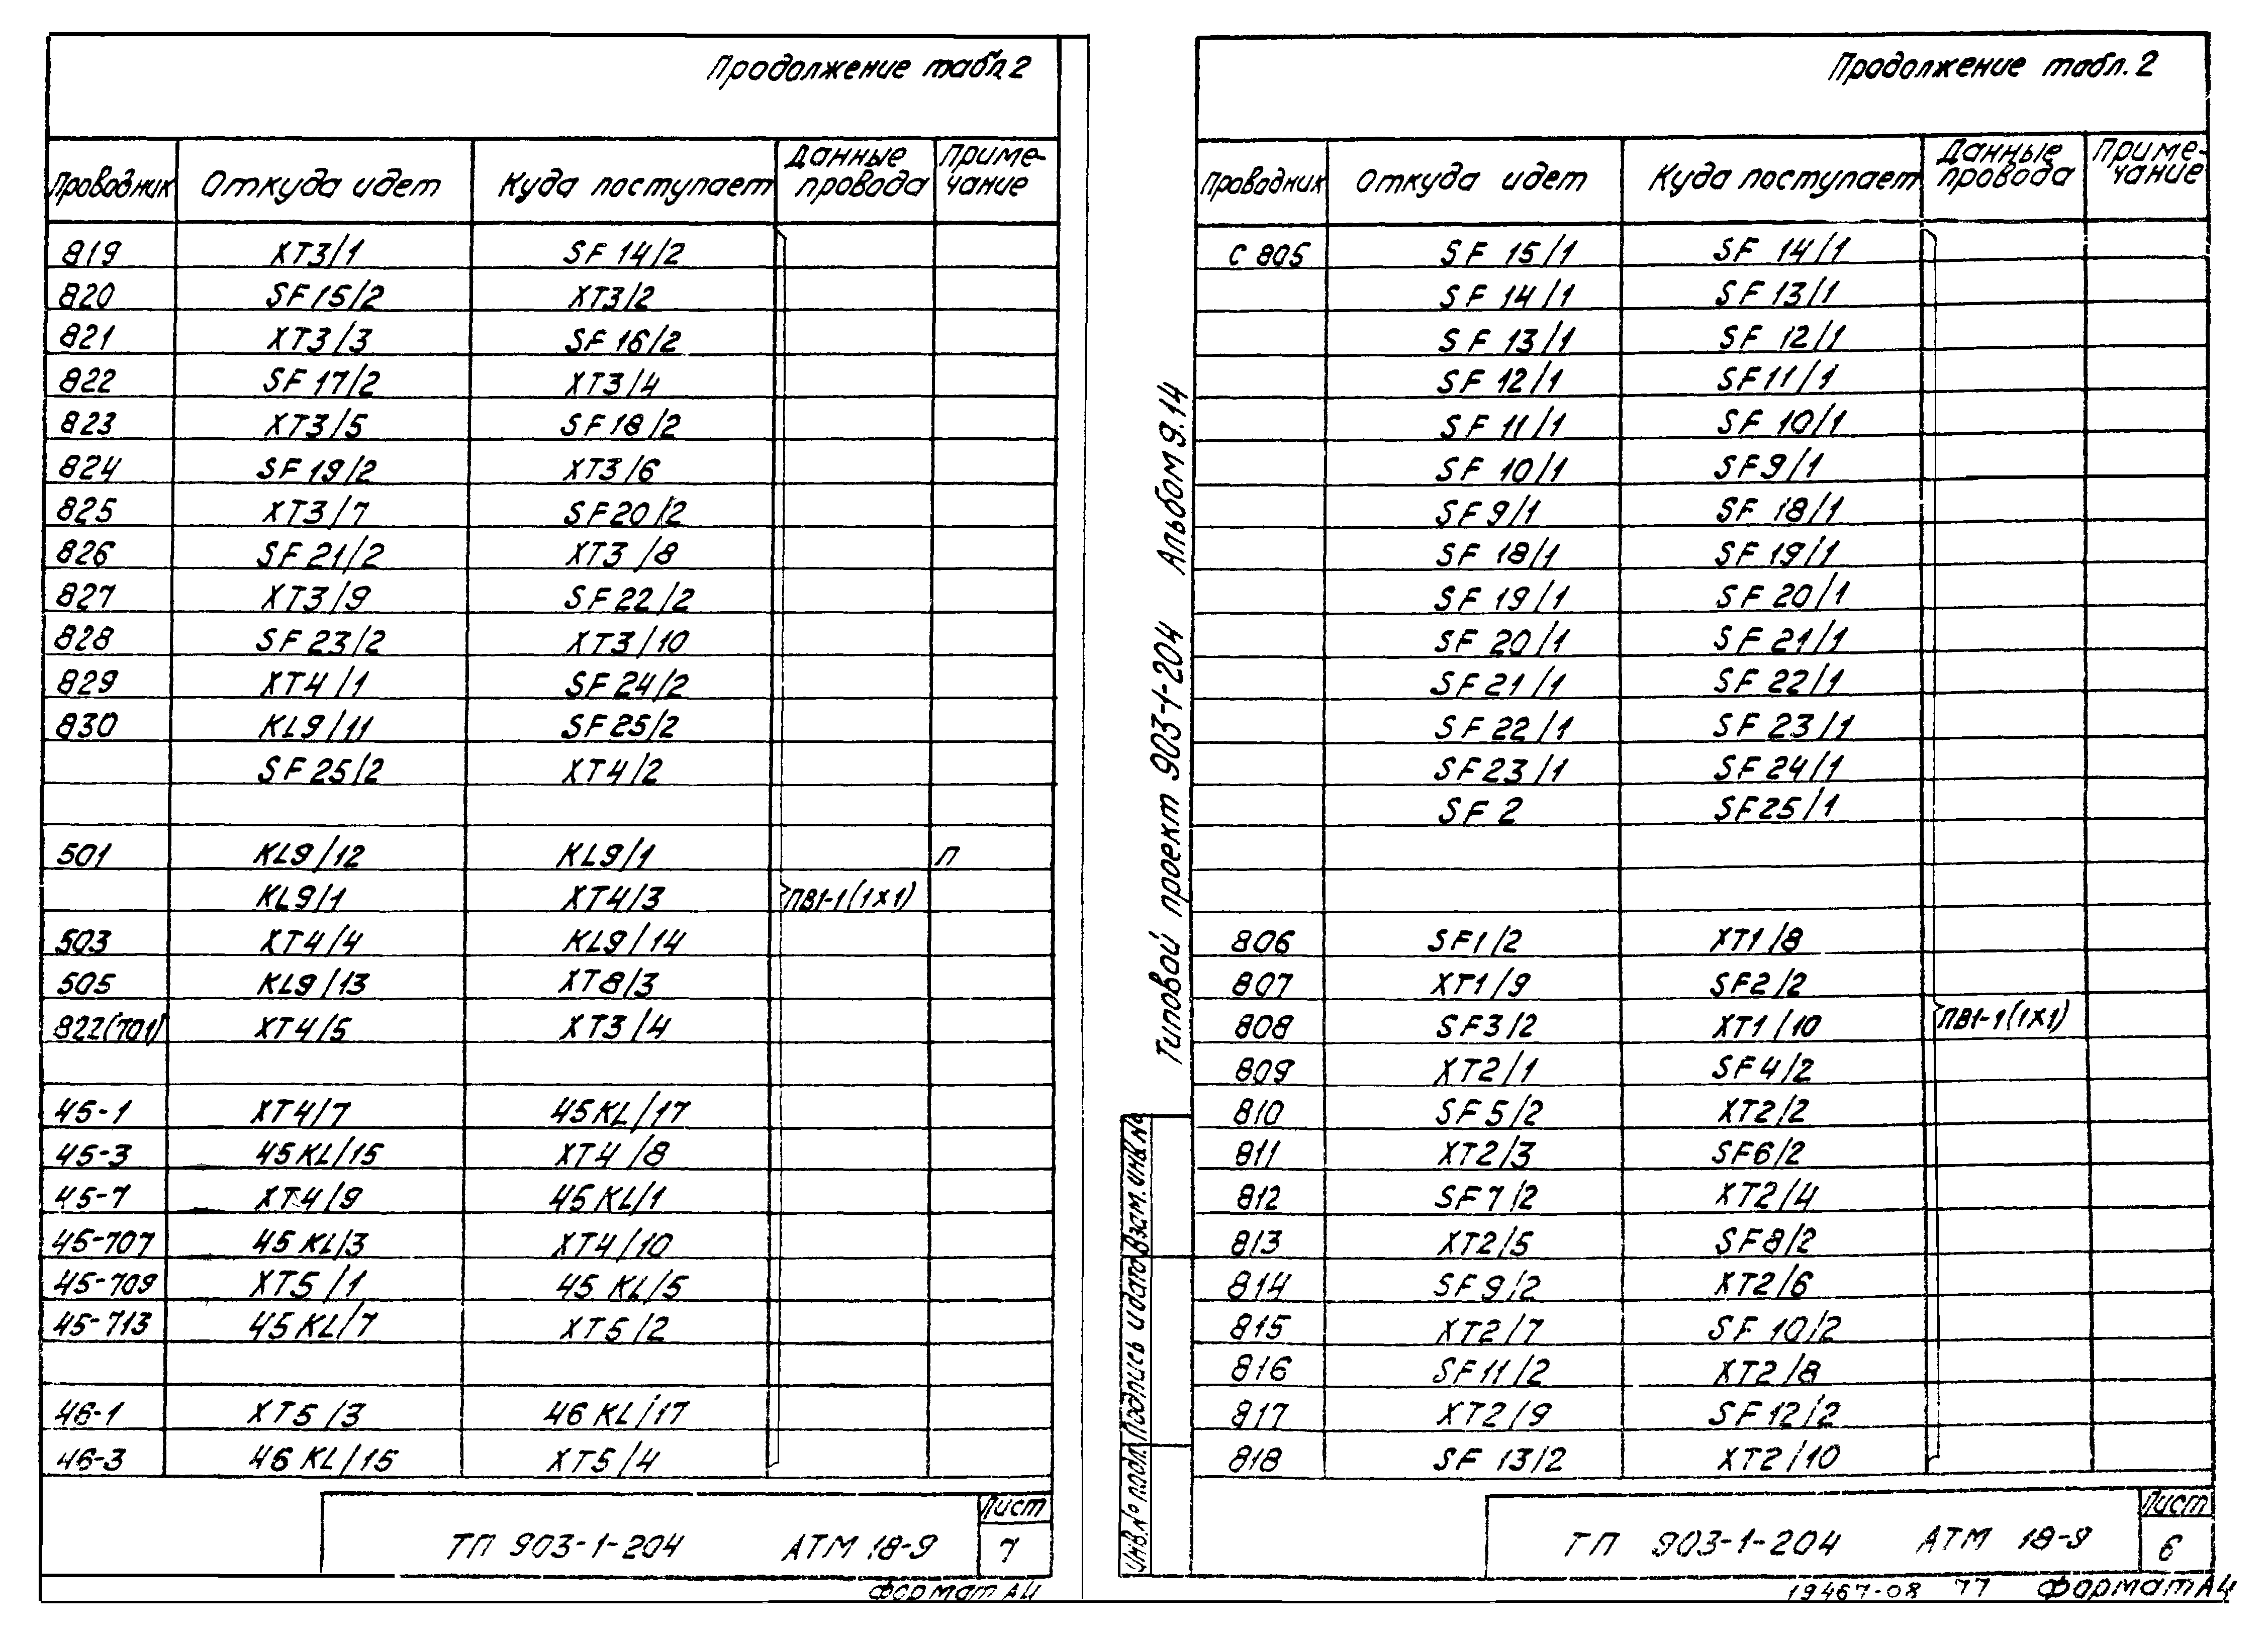 Продолжение табл 2
Проводник Откуда идет Куда поступает Данные провода Приме-чание
819 XT3/1 SF 14/2
820 SF15/2 XT3/2
821 XT3/3 SF16/2
822 SF17/2 XT3/4
823 XT3/5 SF18/2
824 SF19/2 XT3/6
825 XT3/7 SF20/2
826 SF21/2 XT3/8
827 XT3/9 SF22/2
828 SF23/2 XT3/10
829 XT4/1 SF24/2
830 KL9/11 SF25/2
SF25/2 XT4/2
501 KL9/12 KL9/1 п
KL9/1 XT4/3 ПВ1-1(1×1)
503 XT4/4 KL9/14
505 KL9/13 XT8/3
822(701) XT4/5 XT3/4
45-1 XT4/7 45KL/17
45-3 45KL/15 XT4/8
45-7 XT4/9 45KL/1
45-707 45KL/3 XT4/10
45-709 XT5/1 45KL/5
45-713 45KL/7 XT5/2
46-1 XT5/3 46KL/17
46-3 46KL/15 XT5/4
ТП 903-1-204 АТМ 18-9 Лист 7
Формат А4
Продолжение табл. 2
Проводник Откуда идет Куда поступает Данные провода Приме-чание
С 805 SF 15/1 SF 14/1
SF 14/1 SF 13/1
SF 13/1 SF 12/1
SF 12/1 SF11/1
SF 11/1 SF 10/1
SF 10/1 SF9/1
SF9/1 SF 18/1
SF 18/1 SF 19/1
SF 19/1 SF 20/1
SF 20/1 SF 21/1
SF21/1 SF 22/1
SF 22/1 SF 23/1
SF23/1 SF 24/1
SF 2 SF25/1
806 SF1/2 XT1/8
807 XT1/9 SF2/2
808 SF3/2 XT1/10 ПВ1-1(1×1)
809 XT2/1 SF4/2
810 SF5/2 XT2/2
811 XT2/3 SF6/2
812 SF7/2 XT2/4
813 XT2/5 SF8/2
814 SF9/2 XT2/6
815 XT2/7 SF 10/2
816 SF11/2 XT2/8
817 XT2/9 SF12/2
818 SF 13/2 XT2/10
Типовой проект 903-1-204 Альбом 9.14
Инв.№ подл. Подпись и дата Взам. инв.№
ТП 903-1-204 АТМ 18-9 Лист 6
19467-08 77 Формат А4